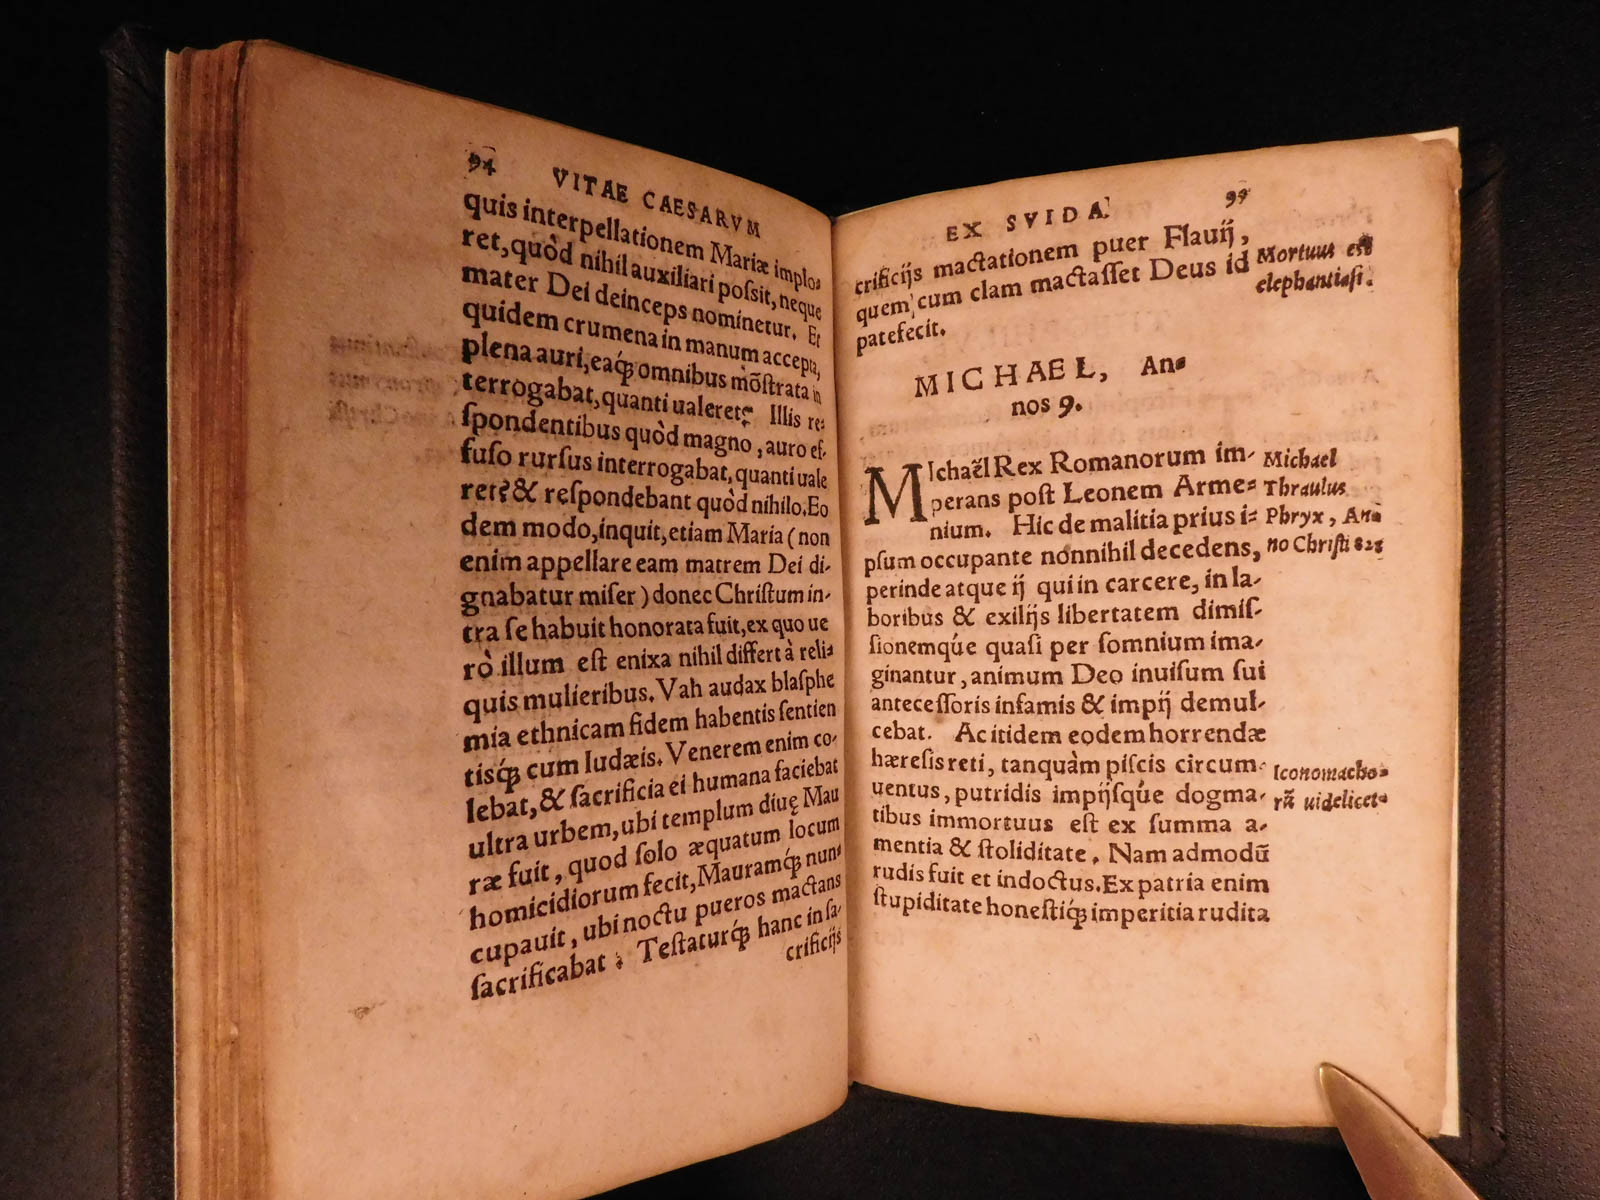 94 VITAE CAESARVM
quis interpellationem Mariæ implo⸗
ret, quòd nihil auxiliari possit, neque
mater Dei deinceps nominetur. Et
quidem crumena in manum accepta,
plena auri, eaq́; omnibus mõstrata in
terrogabat, quanti ualeret? Illis re⸗
spondentibus quòd magno, auro ef⸗
fuso rursus interrogabat, quanti uale
ret? & respondebant quòd nihilo, Eo
dem modo, inquit, etiam Maria (non
enim appellare eam matrem Dei di⸗
gnabatur miser) donec Christum in⸗
tra se habuit honorata fuit, ex quo ue
rò illum est enixa nihil differt à reli⸗
quis mulieribus. Vah audax blasphe
mia ethnicam fidem habentis sentien
tisq́; cum Iudæis. Venerem enim co⸗
lebat, & sacrificia ei humana faciebat
ultra urbem, ubi templum diuę Mau
ræ fuit, quod solo æquatum locum
homicidiorum fecit, Mauramq́; nun⸗
cupauit, ubi noctu pueros mactans
sacrificabat. Testaturq́; hanc in sa⸗
crificijs
EX SVIDA. 99
crificijs mactationem puer Flauij,
quem, cum clam mactasset Deus id
patefecit.
Mortuus est
elephantiasi.
MICHAEL, An⸗
nos 9.
MIchaël Rex Romanorum im⸗
perans post Leonem Arme⸗
nium. Hic de malitia prius i⸗
psum occupante nonnihil decedens,
perinde atque ij qui in carcere, in la⸗
boribus & exilijs libertatem dimis⸗
sionemq́ue quasi per somnium ima⸗
ginantur, animum Deo inuisum sui
antecessoris infamis & impij demul⸗
cebat. Ac itidem eodem horrendæ
hæresis reti, tanquàm piscis circum⸗
uentus, putridis impijsq́ue dogma⸗
tibus immortuus est ex summa a⸗
mentia & stoliditate. Nam admodũ
rudis fuit et indoctus. Ex patria enim
stupiditate honestiq́; imperitia rudita
Michael
Thraulus
Phryx, An⸗
no Christi
Iconomacho⸗
rũ uidelicet⸗